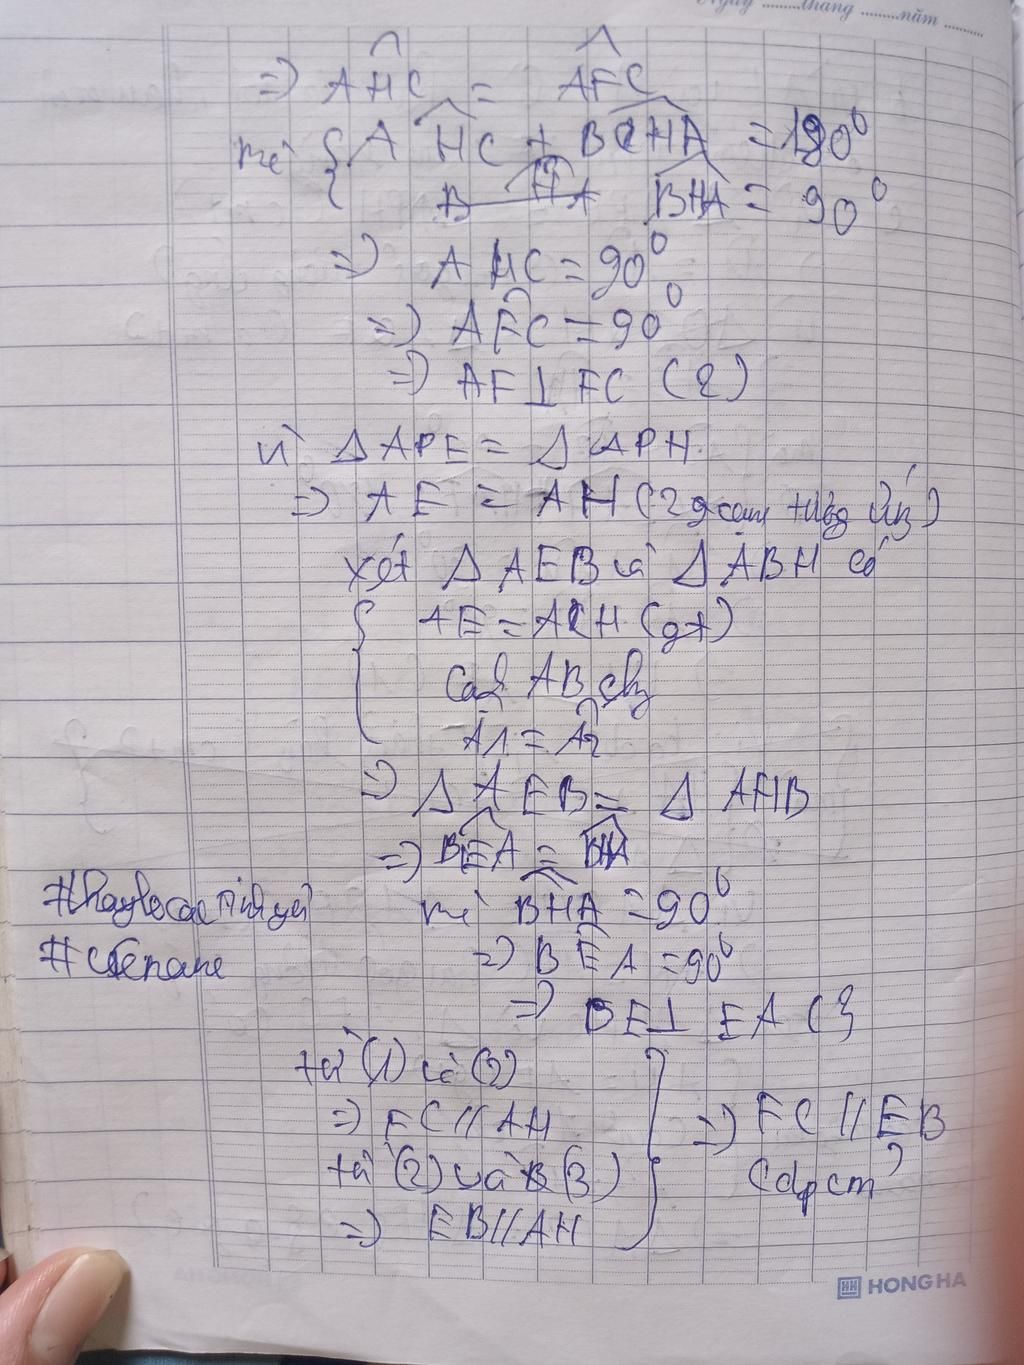 Ngày ......... tháng ......... năm .........
=> AHC = AFC
mà { AHC + BHA = 180⁰
BHA BHA = 90⁰
=> AHC = 90⁰
=> AFC = 90⁰
=> AF ⊥ FC (2)
vì Δ APE = Δ APH
=> AE = AH (2 cạnh tương ứng)
xét Δ AEB và Δ ABH có
{ AE = AH (gt)
Cạnh AB chg
A1 = A2
=> Δ AEB = Δ AHB
=> BEA = BHA
mà BHA = 90⁰
=> BEA = 90⁰
=> BE ⊥ EA (3
từ (1) và (2)
=> FC // AH
từ (2) và (3)
=> EB // AH
} => FC // EB
(đpcm)
HONG HA